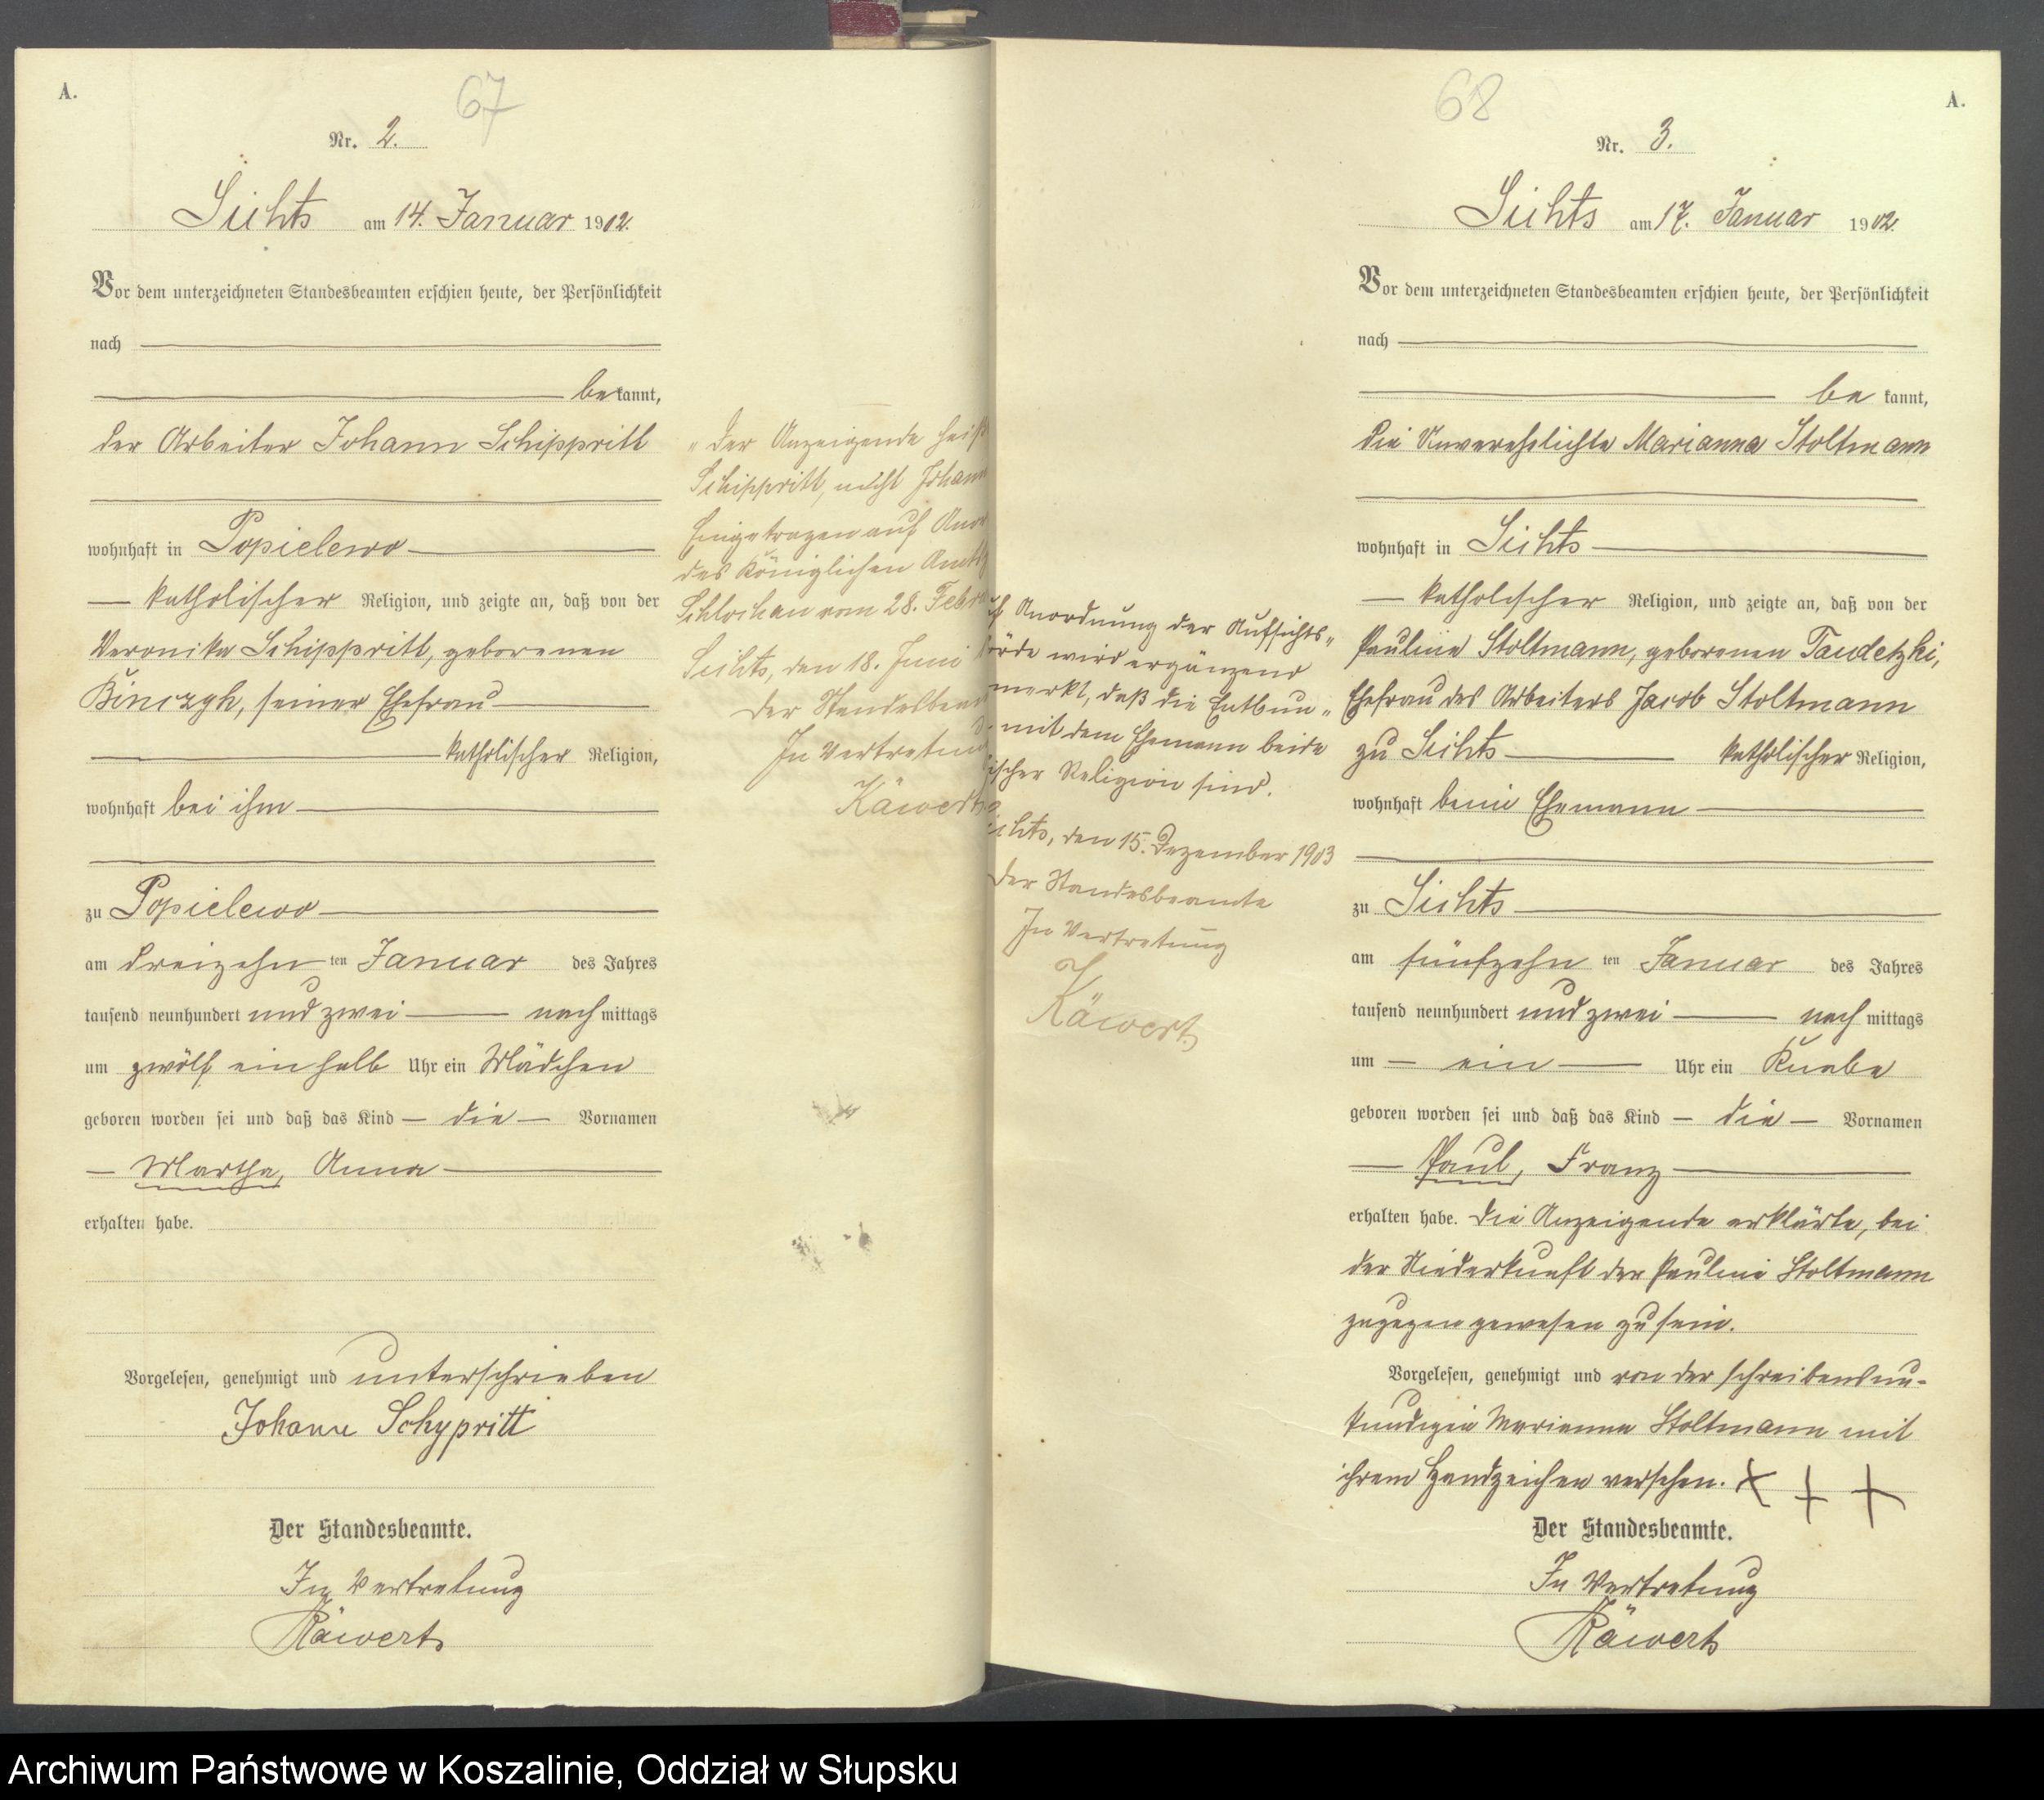 A.
67
Nr. 2.
Sichts am 14. Januar 1902.
Vor dem unterzeichneten Standesbeamten erschien heute, der Persönlichkeit
nach
bekannt,
der Arbeiter Johann Schippritt
wohnhaft in Popielewo
katholischer Religion, und zeigte an, daß von der
Veronika Schippritt, geborenen
seiner Ehefrau
katholischer Religion,
wohnhaft bei ihm
zu Popielewo
am dreizehn ten Januar des Jahres
tausend neunhundert und zwei nachmittags
um zwölf einhalb Uhr ein Mädchen
geboren worden sei und daß das Kind die Vornamen
Martha, Anna
erhalten habe.
Vorgelesen, genehmigt und unterschrieben
Johann Schypritt
Der Standesbeamte.
In Vertretung
Käwert
Der Anzeigende heiß
Schippritt, nicht Johann
Eingetragen auf Anor
des Königlichen Amts
Schlochau vom 28. Febr
Sichts, den 18. Juni
Der Standesbeam
In Vertretung
Käwert
68
A.
Nr. 3.
Sichts am 17. Januar 1902.
Vor dem unterzeichneten Standesbeamten erschien heute, der Persönlichkeit
nach
be kannt,
die Unverehelichte Marianna Stoltmann
wohnhaft in Sichts
katholischer Religion, und zeigte an, daß von der
Pauline Stoltmann, geborenen Taudetzki,
Ehefrau des Arbeiters Jacob Stoltmann
zu Sichts katholischer Religion,
wohnhaft beim Ehemann
zu Sichts
am fünfzehn ten Januar des Jahres
tausend neunhundert und zwei nach mittags
um ein Uhr ein Knabe
geboren worden sei und daß das Kind die Vornamen
Paul, Franz
erhalten habe. Die Anzeigende erklärte, bei
der Niederkunft der Pauline Stoltmann
zugegen gewesen zu sein.
Vorgelesen, genehmigt und von der schreibensun-
kundigen Marianna Stoltmann mit
ihrem Handzeichen versehen. + + +
Der Standesbeamte.
In Vertretung
Käwert
uf Anordnung der Aufsichts-
örde wird ergänzend
merkt, daß die Entbun-
mit dem Ehemann beide
ischer Religion sind.
ichts, den 15. Dezember 1903
Der Standesbeamte
In Vertretung
Käwert
Archiwum Państwowe w Koszalinie, Oddział w Słupsku